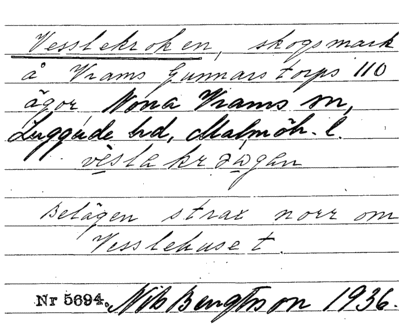 Vesslekroken, skogsmark
å Vrams Gunnarstorps 110
ägor Norra Vrams sn,
Luggude hd, Malmöh. l.
vesla
Belägen strax norr om
Vesslehuset.
Nr 5694. Nils Bengtsson 1936.